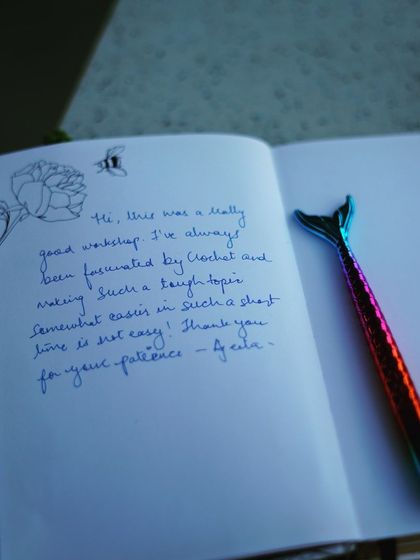 Hi, this was a really
good workshop. I've always
been fascinated by Crochet and
making such a tough topic
somewhat easier in such a short
time is not easy! Thank you
for your patience —